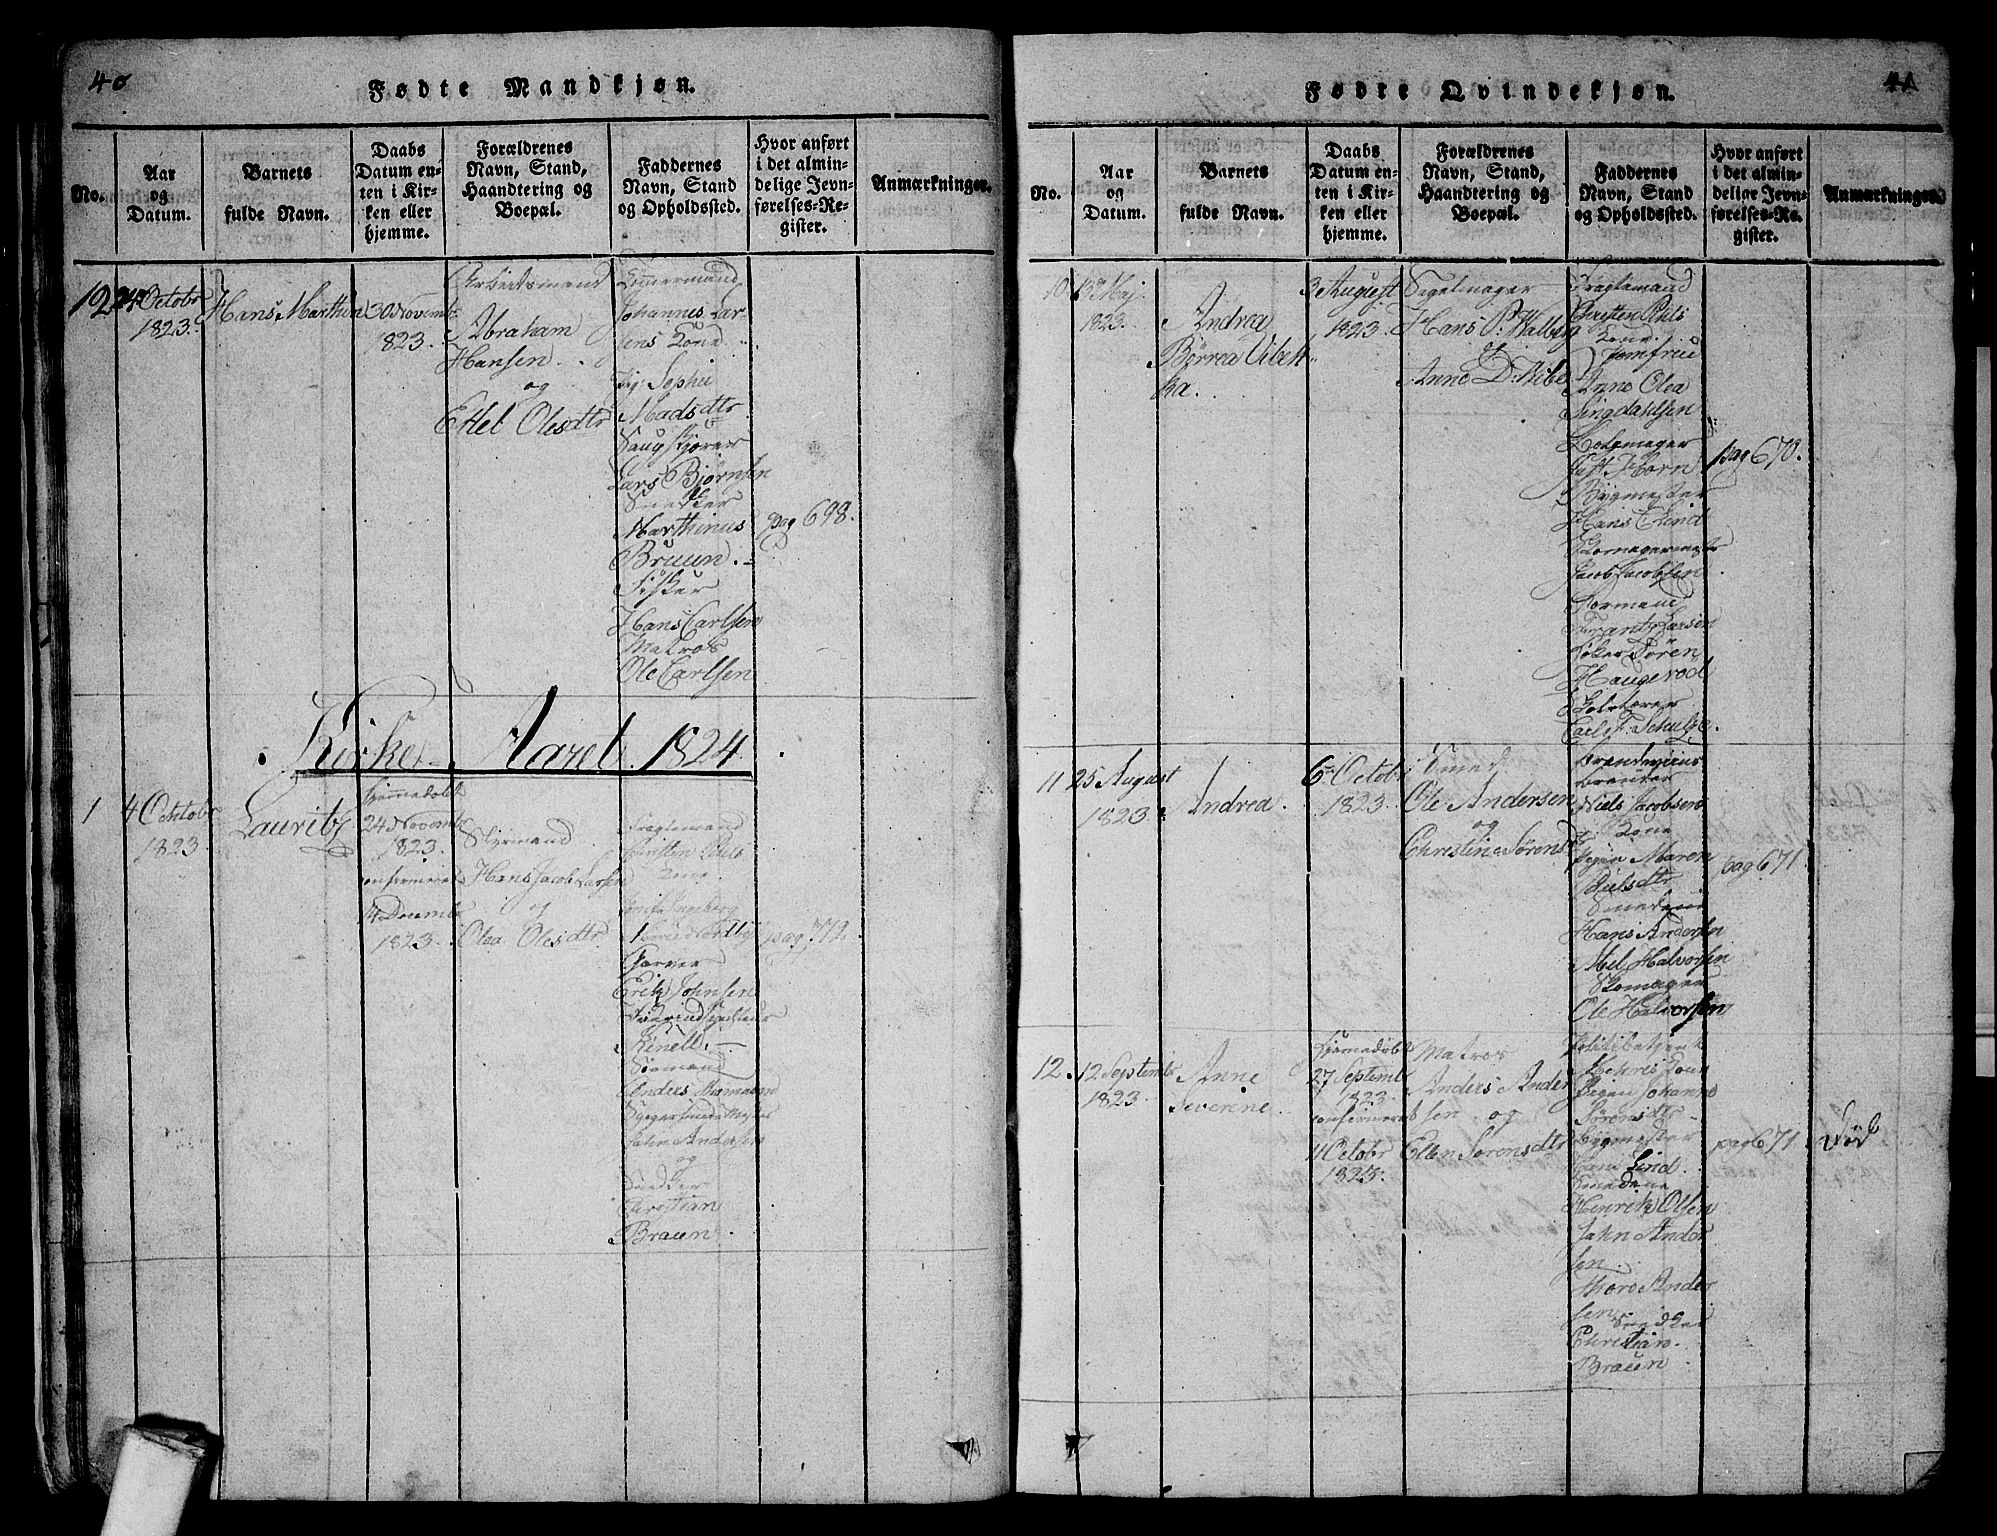 40
Fødte Mandkjøn.
No.
Aar
og
Datum.
Barnets
fulde Navn.
Daabs
Datum en-
ten i Kir-
ken eller
hjemme.
Forældrenes
Navn, Stand,
Haandtering og
Boepæl.
Faddernes
Navn, Stand
og Opholdssted.
Hvor anført
i det almin-
delige Jevn-
førelses-Re-
gister.
Anmærkninger.
19
24 Octobr
1823.
Hans Marthin
30 Novemb.
1823.
Arbeidsmand
Abraham
Hansen
og
Ettel Olesdtr
Tømmermand
Johannes Lar-
sens Kone
Pig. Sophie
Madsdtr
Saugskjærer
Lars Bjørnsen
Snedker
Marthinus
Bruun.
Fisker
Hans Carlsen
Matros
Ole Carlsen
pag 698.
Kirke-Aaret 1824.
1
4 Ocktobr
1823.
Lauritz
hjemmedøbt
24 Novemb
1823.
confirmeret
14 Decemb
1823.
Styrmand
Hans Jacob Larsen
og
Olea Olesdtr
Fragtemand
Christen Piils
Kone
Jomfr Ingeborg
Nordby
Garver
Erik Johnsen
Kinell.
Sømand
Anders
John Andersen
og
Snedker
Christian
Braun.
pag. 712.
41
Fødte Qvindekjøn.
No.
Aar
og
Datum.
Barnets
fulde Navn.
Daabs
Datum en-
ten i Kir-
ken eller
hjemme.
Forældrenes
Navn, Stand,
Haandtering og
Boepæl.
Faddernes
Navn, Stand
og Opholdssted.
Hvor anført
i det almin-
deliae Jevn-
førelses-Re-
gister.
Anmærkninger.
10
13 Maj
1823.
Andrea
Børrea Vibek-
ka.
3 August
1823.
Segelmager
Hans P. Walberg
og
Anne D. Vibe
Fragtemand
Christen Piils
Kone.
Jomfrue
Anne Olea
Lingdahlsen
Horn
Bygmester
Hans Lind
Skomagermestr
Jacob Jacobsen
Formand
Frantz Larsen
Søren
Haugerød
Carl F. Schulze.
pag 670.
11
25 August
1823.
Andrea.
6 Octobr
1823.
Smed
Ole Andersen
og
Christine Sørensd
Brændeviins
brænder
Niels Jacobsens
Kone
Pigen Maren
Nielsdtr
Smedene
Hans Andersen
Abel Halvorsen
Skomager
Ole Halvorsen
pag 671.
12.
12 Septembr
1823.
Anne
Severine.
hjemmedøbt
27 Septemb
1823.
confirmeret
11 Octobr
1823.
Matros
Anders Ander
sen og
Ellen Sørensdtr
Politibetjent
Mehris Kone
Pigen Johanne
Sørensdtr
Bygmester
Hans Lind.
Smedene
Henrik Olsen
John Ander
sen.
Thore Ander
sen
Snedker
Christian
Braun.
pag 671.
død